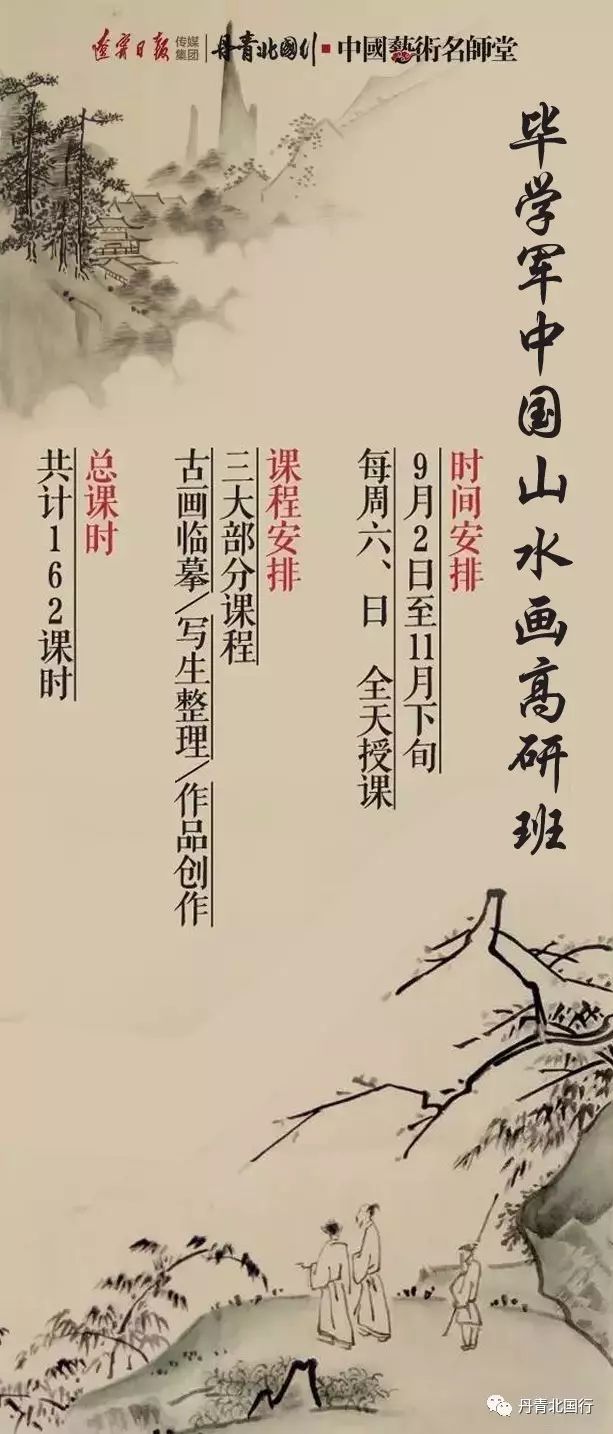 遼寧日报 传媒集团 丹青北國行 中國藝術名師堂
毕学军中国山水画高研班
时间安排
9月2日至11月下旬
每周六、日 全天授课
课程安排
三大部分课程
古画临摹/写生整理/作品创作
总课时
共计162课时
丹青北国行